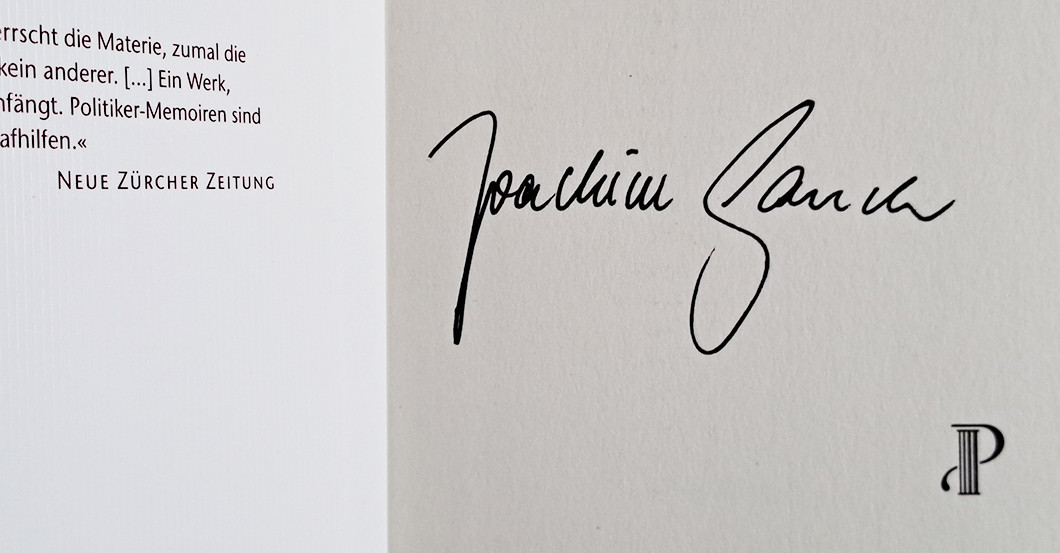 errscht die Materie, zumal die
kein anderer. [...] Ein Werk,
nfängt. Politiker-Memoiren sind
afhilfen.«
NEUE ZÜRCHER ZEITUNG
Joachim Gauck
P